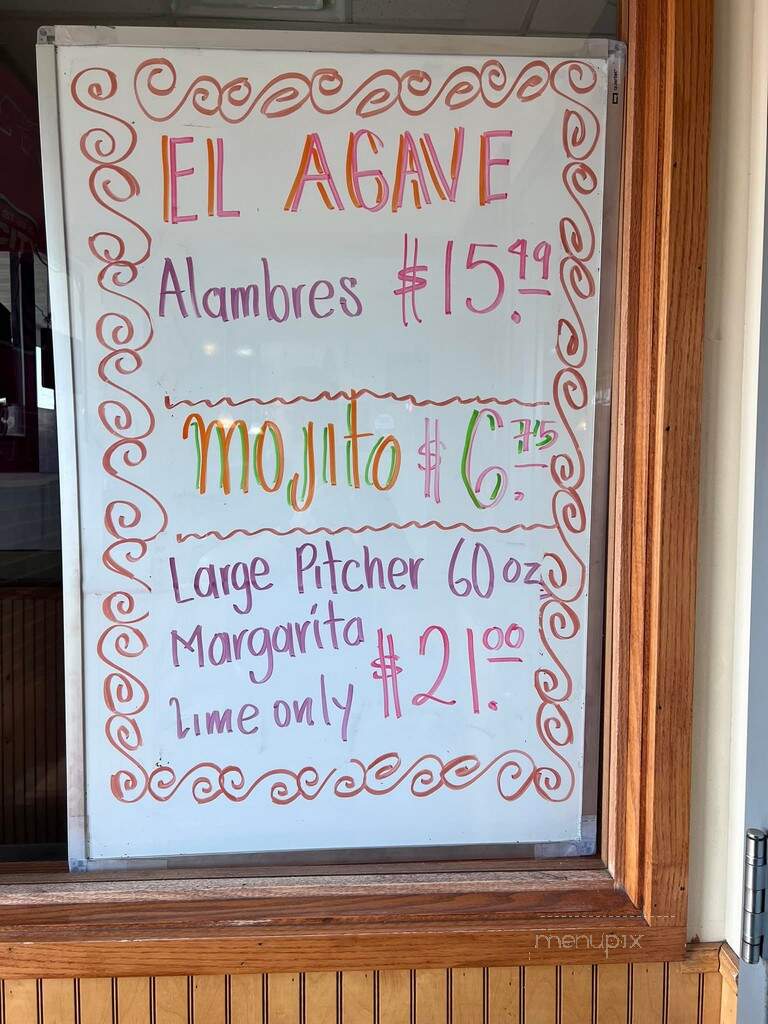 EL AGAVE
Alambres $15.49
Mojito $6.75
Large Pitcher 60 oz
Margarita $21.00
Lime only
menupix